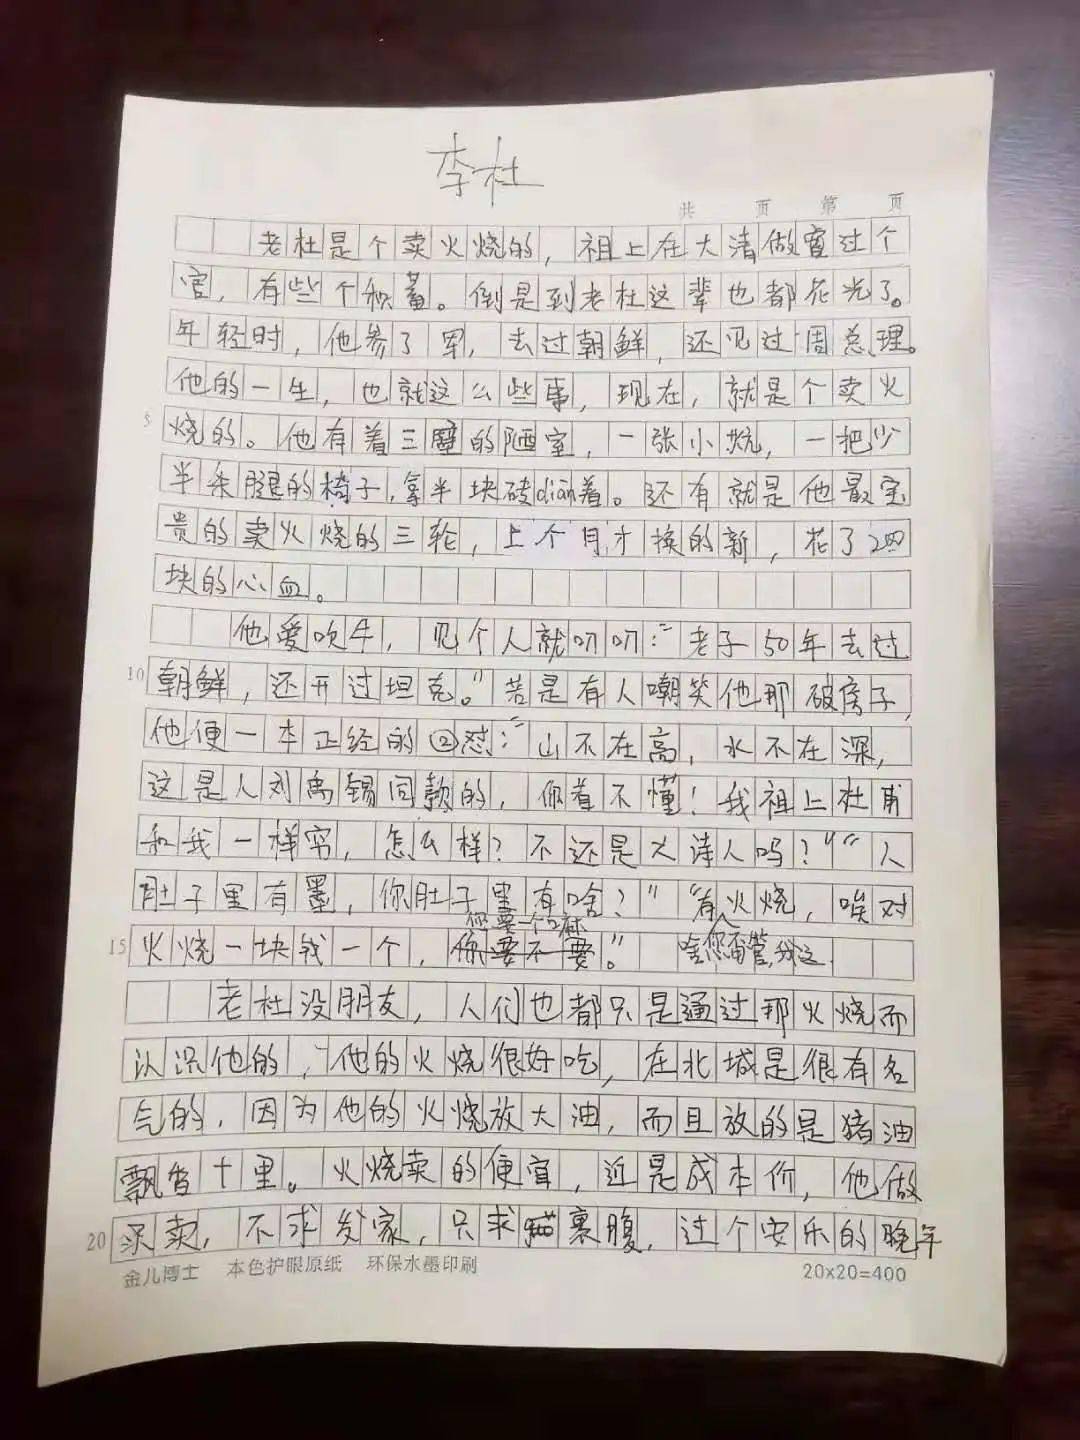 李杜
共 页 第 页
老杜是个卖火烧的，祖上在大清做官过个
官，有些个积蓄。倒是到老杜这辈也都花光了。
年轻时，他参了军，去过朝鲜，还见过周总理。
他的一生，也就这么些事，现在，就是个卖火
5 烧的。他有着三壁的陋室，一张小炕，一把少
半条腿的椅子，拿半块砖dian着。还有就是他最宝
贵的卖火烧的三轮，上个月才换的新，花了2四
块的心血。
他爱吹牛，见个人就叨叨：“老子50年去过
10 朝鲜，还开过坦克。”若是有人嘲笑他那破房子，
他便一本正经的回怼：“山不在高，水不在深，
这是人刘禹锡同款的，你着不懂！我祖上杜甫
和我一样穷，怎么样？不还是大诗人吗？”“人
肚子里有墨，你肚子里有啥？”“有火烧，唉对
您要一个嘛
15 火烧一块钱一个，你要不要。” 啥您甭管，我这
老杜没朋友，人们也都只是通过那火烧而
认识他的，他的火烧很好吃，在北城是很有名
气的，因为他的火烧放大油，而且放的是猪油
飘香十里。火烧卖的便宜，近是成本价，他做
20 买卖，不求发家，只求裹腹，过个安乐的晚年
金儿博士 本色护眼原纸 环保水墨印刷 20x20=400